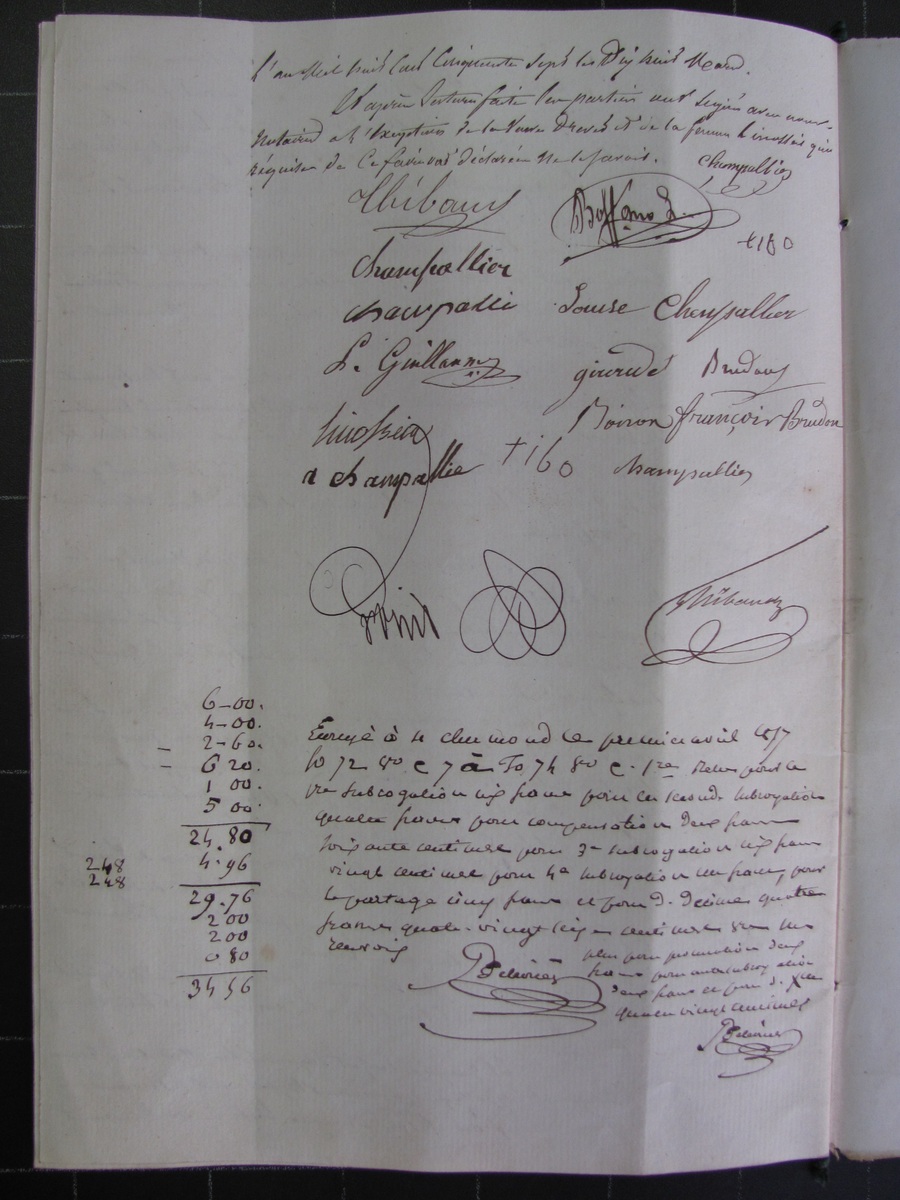 L'an Mil huit Cent Cinquante Sept les Dix huit Mars.
Et après lecture faite les parties ont signé avec nous
Notaires à l'exception de la Veuve et de la femme qui
requises de ce faire ont déclaré ne le savoir.
Champallier
Thibaud
+180
Champallier
Champalli
Louise Champallier
L. Guillaume
giraud Brudon
Boiron françois Brudon
Linossier
a champallie
+ 160
Champallier
Thibaud
6-00.
4-00.
2-60.
6 20.
1 00.
5 00.
24.80
248
4.96
248
29.76
2 00
2 00
0 80
34 56
Enregé à St chamond le premier avril 1857
fo 72 vo c 7 à fo 74 vo c. 1re Reçu pour la
1re subrogation six francs pour la seconde subrogation
quatre francs pour compensation deux francs
soixante centimes pour 3e subrogation six francs
vingt centimes pour 4e subrogation un franc, pour
le partage cinq francs et pour d. decimes quatre
francs quatre-vingt seize centimes sans un
renvoi
plus pour procuration deux
francs pour autre subrogation
deux francs et pour d. Xme
quatre vingt centimes